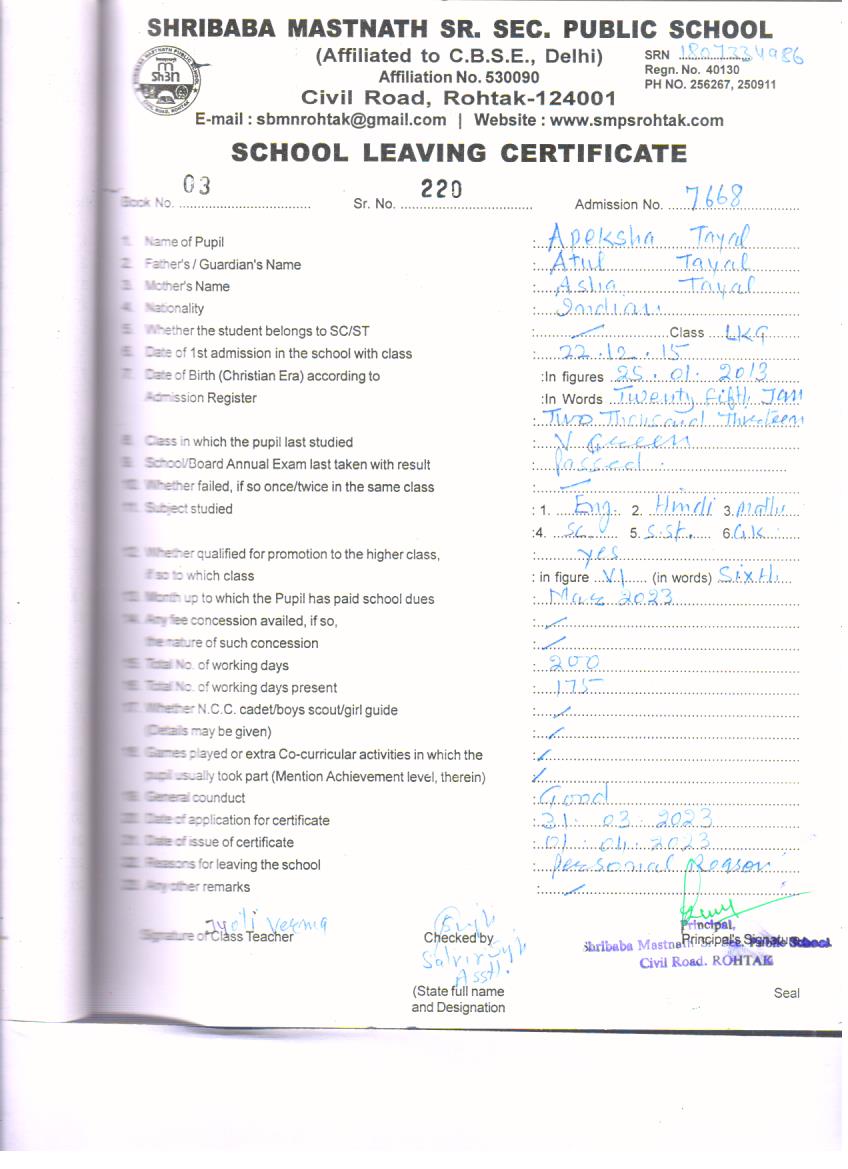 SHRIBABA MASTNATH SR. SEC. PUBLIC SCHOOL
(Affiliated to C.B.S.E., Delhi)
SRN 1807334986
Affiliation No. 530090
Regn. No. 40130
Civil Road, Rohtak-124001
PH NO. 256267, 250911
E-mail : sbmnrohtak@gmail.com | Website : www.smpsrohtak.com
SCHOOL LEAVING CERTIFICATE
Book No. 03 Sr. No. 220 Admission No. 7668
1. Name of Pupil : Apeksha Tayal
2. Father's / Guardian's Name : Atul Tayal
3. Mother's Name : Asha Tayal
4. Nationality : Indian
5. Whether the student belongs to SC/ST : Class LKG
6. Date of 1st admission in the school with class : 22.12.15
7. Date of Birth (Christian Era) according to :In figures 25.01.2013
Admission Register :In Words Twenty Fifth Jan
: Two Thousand Threteen
8. Class in which the pupil last studied : V Queen
9. School/Board Annual Exam last taken with result : Passed
10. Whether failed, if so once/twice in the same class :
11. Subject studied : 1. Eng. 2. Hindi 3. Maths
:4. Sc 5. S.St. 6. G.K.
12. Whether qualified for promotion to the higher class, : yes
if so to which class : in figure VI (in words) Sixth
13. Month up to which the Pupil has paid school dues : Mar 2023
14. Any fee concession availed, if so, :
the nature of such concession :
15. Total No. of working days : 200
16. Total No. of working days present : 175
17. Whether N.C.C. cadet/boys scout/girl guide :
(Details may be given) :
18. Games played or extra Co-curricular activities in which the :
pupil usually took part (Mention Achievement level, therein) :
19. General counduct : Good
20. Date of application for certificate : 31.03.2023
21. Date of issue of certificate : 01.04.2023
22. Reasons for leaving the school : Personal Reason
23. Any other remarks :
Jyoti Verma
Principal,
Signature of Class Teacher Checked by Principal's Signature
Shribaba Mastnath Public School
Civil Road. ROHTAK
Asstt.
(State full name Seal
and Designation